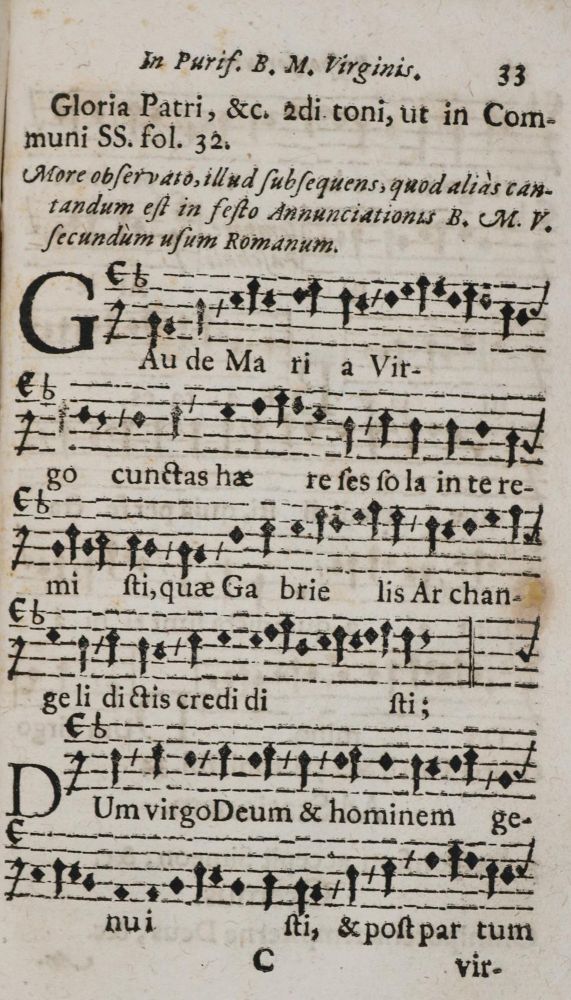 In Purif. B. M. Virginis. 33
Gloria Patri, &c. 2di toni, ut in Com-
muni SS. fol. 32.
More observato, illud subsequens, quod aliàs can-
tandum est in festo Annunciationis B. M. V.
secundùm usum Romanum.
GAu de Ma ri a Vir-
go cunctas hæ re ses so la in te re-
mi sti, quæ Ga brie lis Ar chan-
ge li dictis credi di sti;
DUm virgo Deum & hominem ge-
nu i sti, & post par tum
C vir-